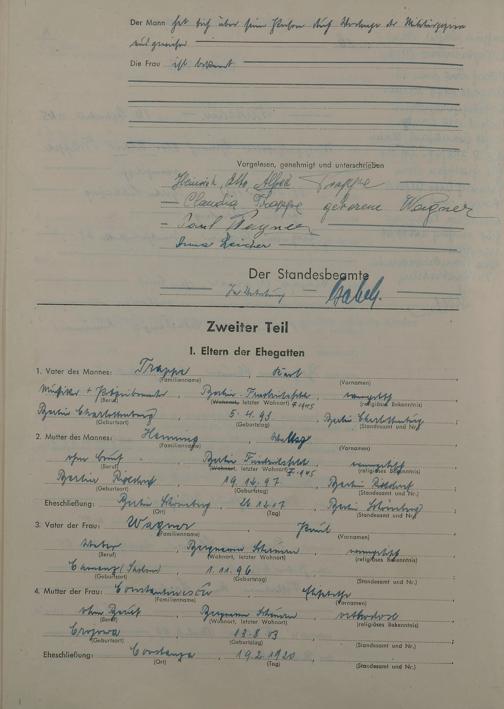 Der Mann hat sich über seine Person durch Vorlage der
ausgewiesen
Die Frau ist bekannt
Vorgelesen, genehmigt und unterschrieben
Heinrich, Otto, Alfred Trappe
Claudia Trappe geborene Wagner
Paul Wagner
Anna
Der Standesbeamte
In Vertretung
Zweiter Teil
I. Eltern der Ehegatten
1. Vater des Mannes: Trappe Karl
(Familienname) (Vornamen)
Musiker + Berlin Friedrichsfelde evangelisch
(Beruf) (Wohnort, letzter Wohnort) † 1945 (religiöses Bekenntnis)
Berlin Charlottenburg 5. 4. 93 Berlin Charlottenburg
(Geburtsort) (Geburtstag) (Standesamt und Nr.)
2. Mutter des Mannes: Henning
(Familienname) (Vornamen)
ohne Beruf Berlin Friedrichsfelde evangelisch
(Beruf) (Wohnort, letzter Wohnort) † 1945 (religiöses Bekenntnis)
Berlin 19. 12. 97 Berlin
(Geburtsort) (Geburtstag) (Standesamt und Nr.)
Eheschließung: Berlin Schöneberg 26 12 17 Berlin Schöneberg
(Ort) (Tag) (Standesamt und Nr.)
3. Vater der Frau: Wagner Paul
(Familienname) (Vornamen)
Weber evangelisch
(Beruf) (Wohnort, letzter Wohnort) (religiöses Bekenntnis)
Camenz 1. 11. 96
(Geburtsort) (Geburtstag) (Standesamt und Nr.)
4. Mutter der Frau:
(Familienname) (Vornamen)
ohne Beruf orthodox
(Beruf) (Wohnort, letzter Wohnort) (religiöses Bekenntnis)
13. 8. 03
(Geburtsort) (Geburtstag) (Standesamt und Nr.)
Eheschließung: Constanza 19. 2. 1920
(Ort) (Tag) (Standesamt und Nr.)